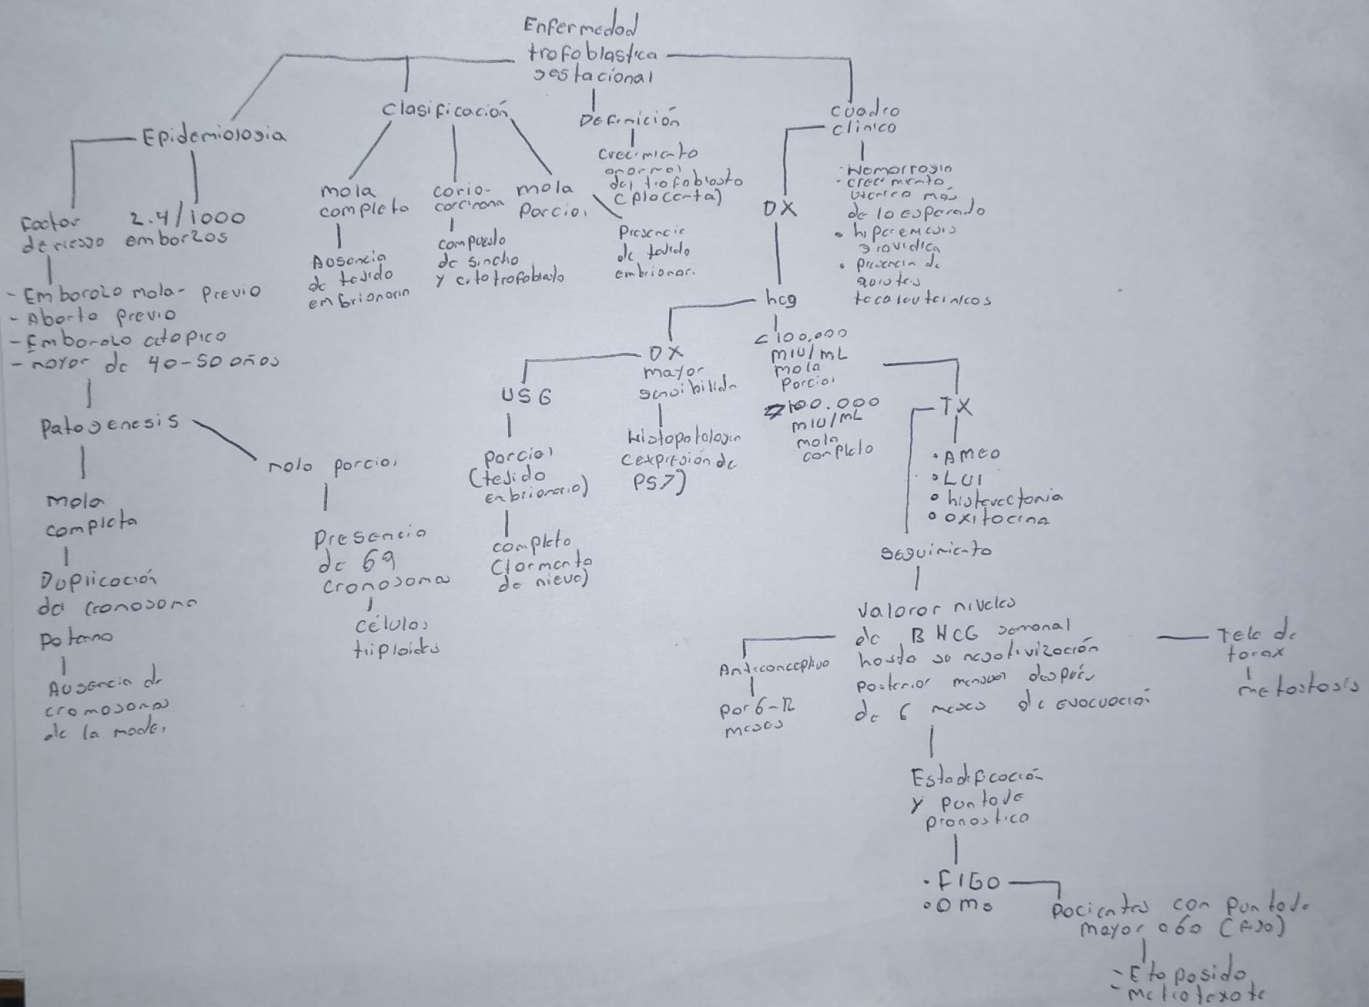 Enfermedad
trofoblastica
gestacional
Epidemiologia
Factor
de riesgo
- Embarazo molar previo
- Aborto previo
- Embarazo ectopico
- mayor de 40-50 años
2.4/1000
embarzos
Patogenesis
Mola
completa
Duplicación
del cromosoma
paterno
Ausencia de
cromosomas
de la madre
mola parcial
Presencia
de 69
cromosomas
células
triploides
Clasificación
mola
completa
Ausencia
de tejido
embrionario
corio-
carcinoma
compuesto
de sincho
y citotrofoblasto
mola
parcial
Presencia
de tejido
embrionar.
Definición
Crecimiento
anormal
del trofoblasto
(placenta)
cuadro
clinico
- Hemorragia
- crecimiento
uterino mas
de lo esperado
• hiperemesis
gravidica
• presencia de
quistes
tecaluteinicos
DX
hcg
<100,000
mIU/mL
mola
parcial
>100.000
mIU/mL
mola
completo
DX
mayor
sensibilida
Histopatologia
(expresión de
P57)
USG
parcial
(tejido
embrionario)
completo
(tormenta
de nieve)
TX
• AMEO
• LUI
• histerectomia
• oxitocina
seguimiento
Valorar niveles
de BHCG semanal
hasta su negativización
posterior mensual después
de 6 meses de evacuación
Anticonceptivo
por 6-12
meses
Tele de
torax
metastasis
Estadificación
y puntaje
pronostico
• FIGO
• OMS
pacientes con puntaje
mayor a 6 o (FIGO)
- Etoposido
- metrotexate